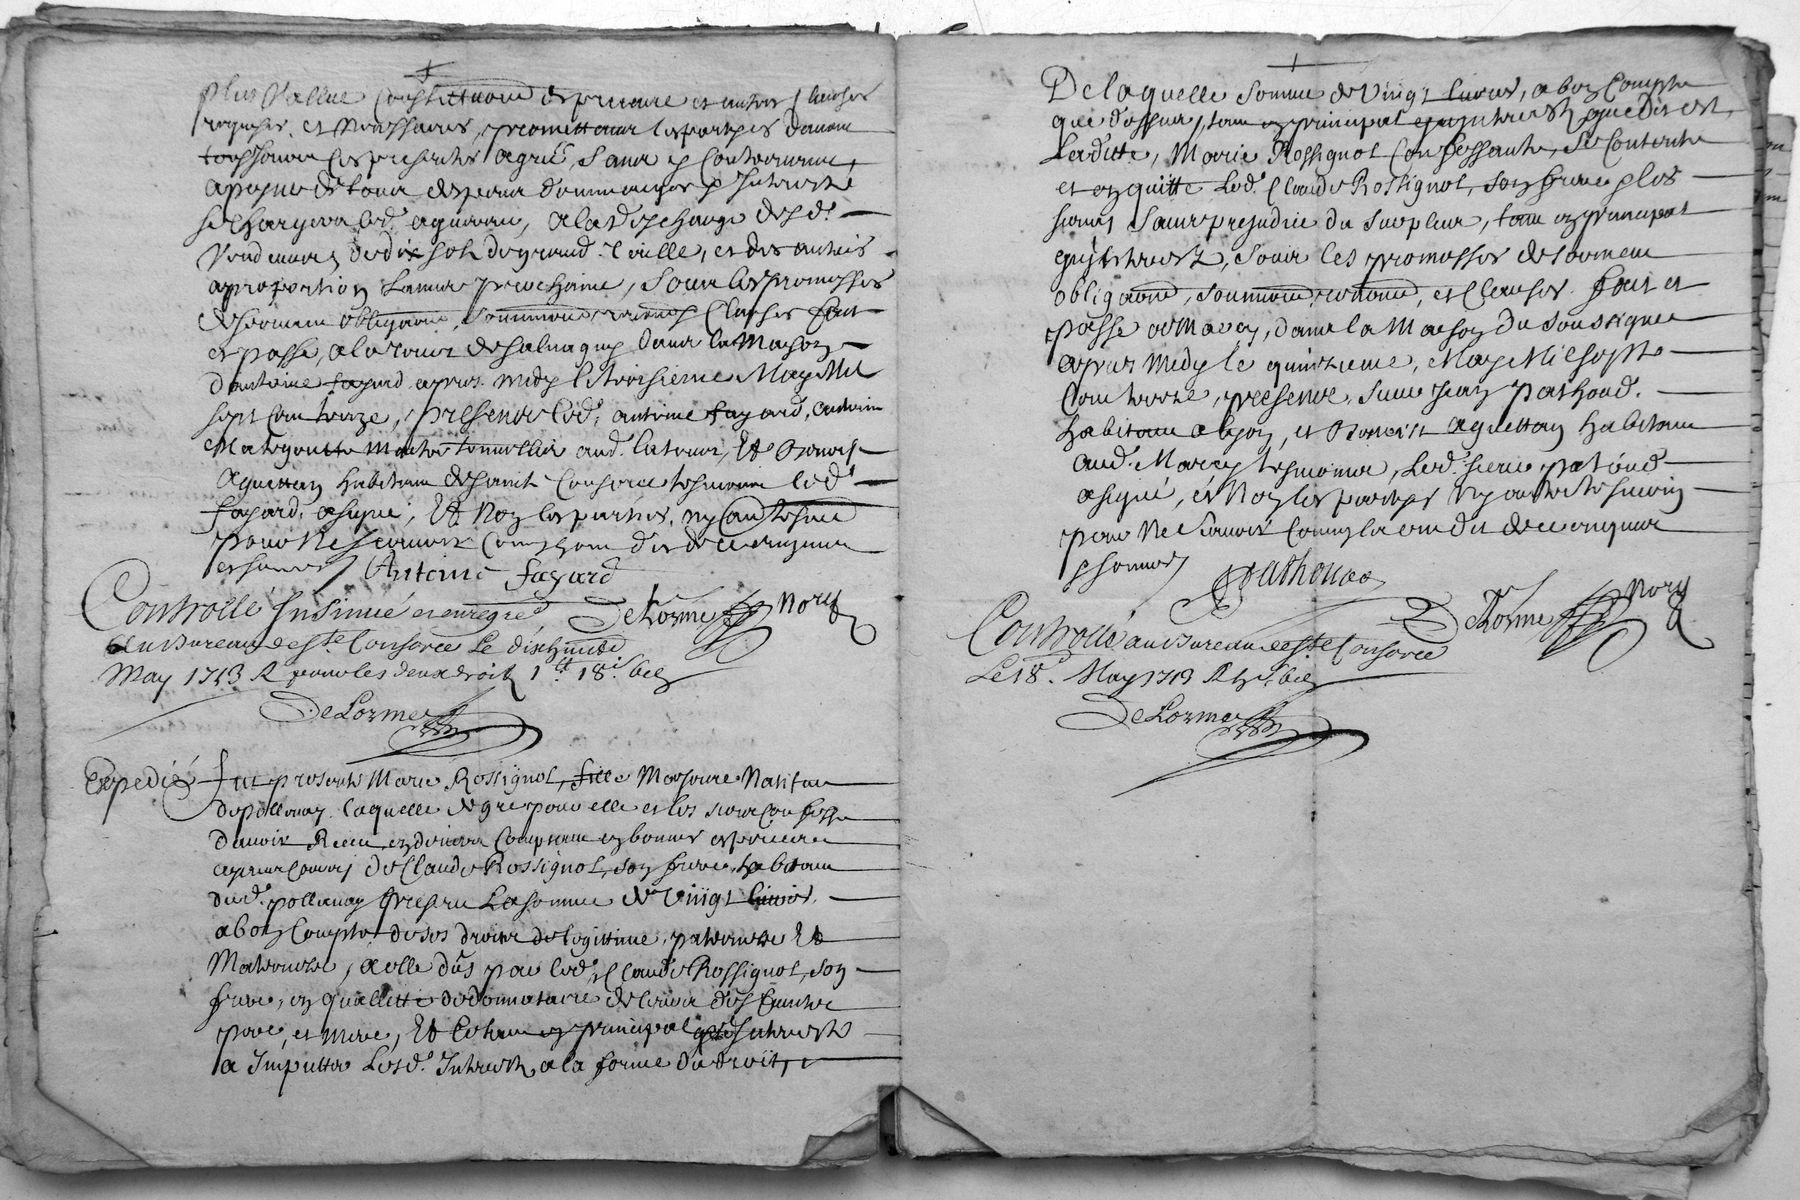 plus vallue constitution de precaire et autres clauses
requises, et necessaires, promettant les parties d'avoir
tousjours ces presentes agreé, sans y contrevenir,
a peyne de tous despens dommages & interests
se chargera led. aquereur, a la descharge desd.
vendeurs de dix sols de grand taille, et des autres
a proportion l'année prochaine, sous les promesses
de serment obligaōns, soumissions, & clauses fait
et passé, a la tour de salvagny dans la maison
d'antoine fayard apres midy le troisieme May Mil
sept cent treize, presence led. antoine fayard, antoine
Mategoutte maitre tonnellier aud. latour, Et Benoist
Aguettan habitant de saint Consorce tesmoins led.
fayard, a signé, Et Non les parties, ny l'autre tesmoin
pour ne scavoir comme ont dit de ce enquis
et sommés Antoine fayard
Controllé Insinué et enregré DeLorme Nore
Au Bureau de Ste Consorce Le dixhuitie
May 1713 R pour les deux droits 1ᵗᵗ 18ˢ 6d
DeLorme
Expedié fut presente Marie Rossignol, fille Majeure Natifve
de pollionay laquelle de gre pour elle et les siens confesse
d'avoir Receu en deniers comptant en bonnes especes
ayant cours de Claude Rossignol, son frere, habitant
dud. pollionay present La somme de Vingt livres,
a bon compte de ses droits de legittime, paternels Et
Maternels, a elle dûs par led. Claude Rossignol, son
frere, en qualitté de donnataire de leurs deffunts
pere, et mere, Et Ce tant en principal qu'interests
a Imputter Lesd. Interests a la forme du droit,
De laquelle somme de Vingt livres, a bon compte
que dessus, tant en principal qu'interests que dit est,
Laditte, Marie Rossignol Confessante, se Contente
et en quitte Led. Claude Rossignol, son frere & les
siens sans prejudice du surplus, tant en principal
qu'interests, sous les promesses de serment
obligaōns, soumissions, renonōns, et Clauses. fait et
passé a Marcy, dans la Maison du soussigné
apres midy le quinzieme, May Mil sept
Cent treize, presence, sieur Jean Pathoud,
habitant a lyon, et Benoist Aguettan habitant
aud. Marcy tesmoins, Led. sieur pathoud
a signé, et Non les parties ny autre tesmoin
pour Ne scavoir Comme ils ont dit de ce enquis
& sommés Pathoud
DeLorme Nore
Controllé au Bureau de Ste Consorce
Le 18. May 1713 R
DeLorme